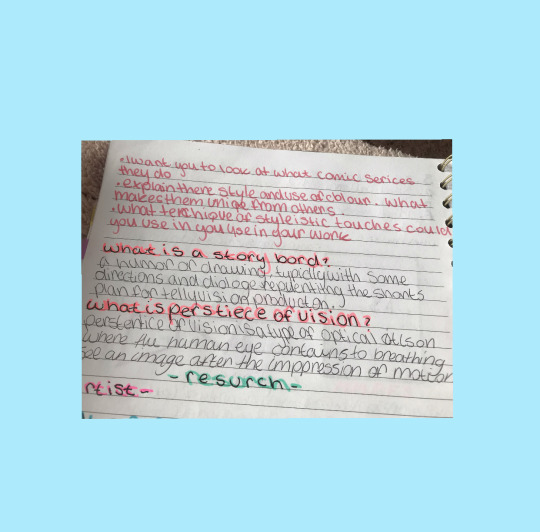 • I want you to look at what comic serices
they do
• explain there style and use of colour. What
makes them uniqe from athens.
• what ternhique of styleistic touches could
you use in you use in your work
what is a story bord?
a humor on drawing, typidic with some
directions and dialoge repuenting the shonts
plan for tellyvision producton.
what is perstiece of vision?
perstentice of vision is a type of optical otison
where the human eye contains to breathing
see an image after the imppression of motion
-resurch-
rtist-